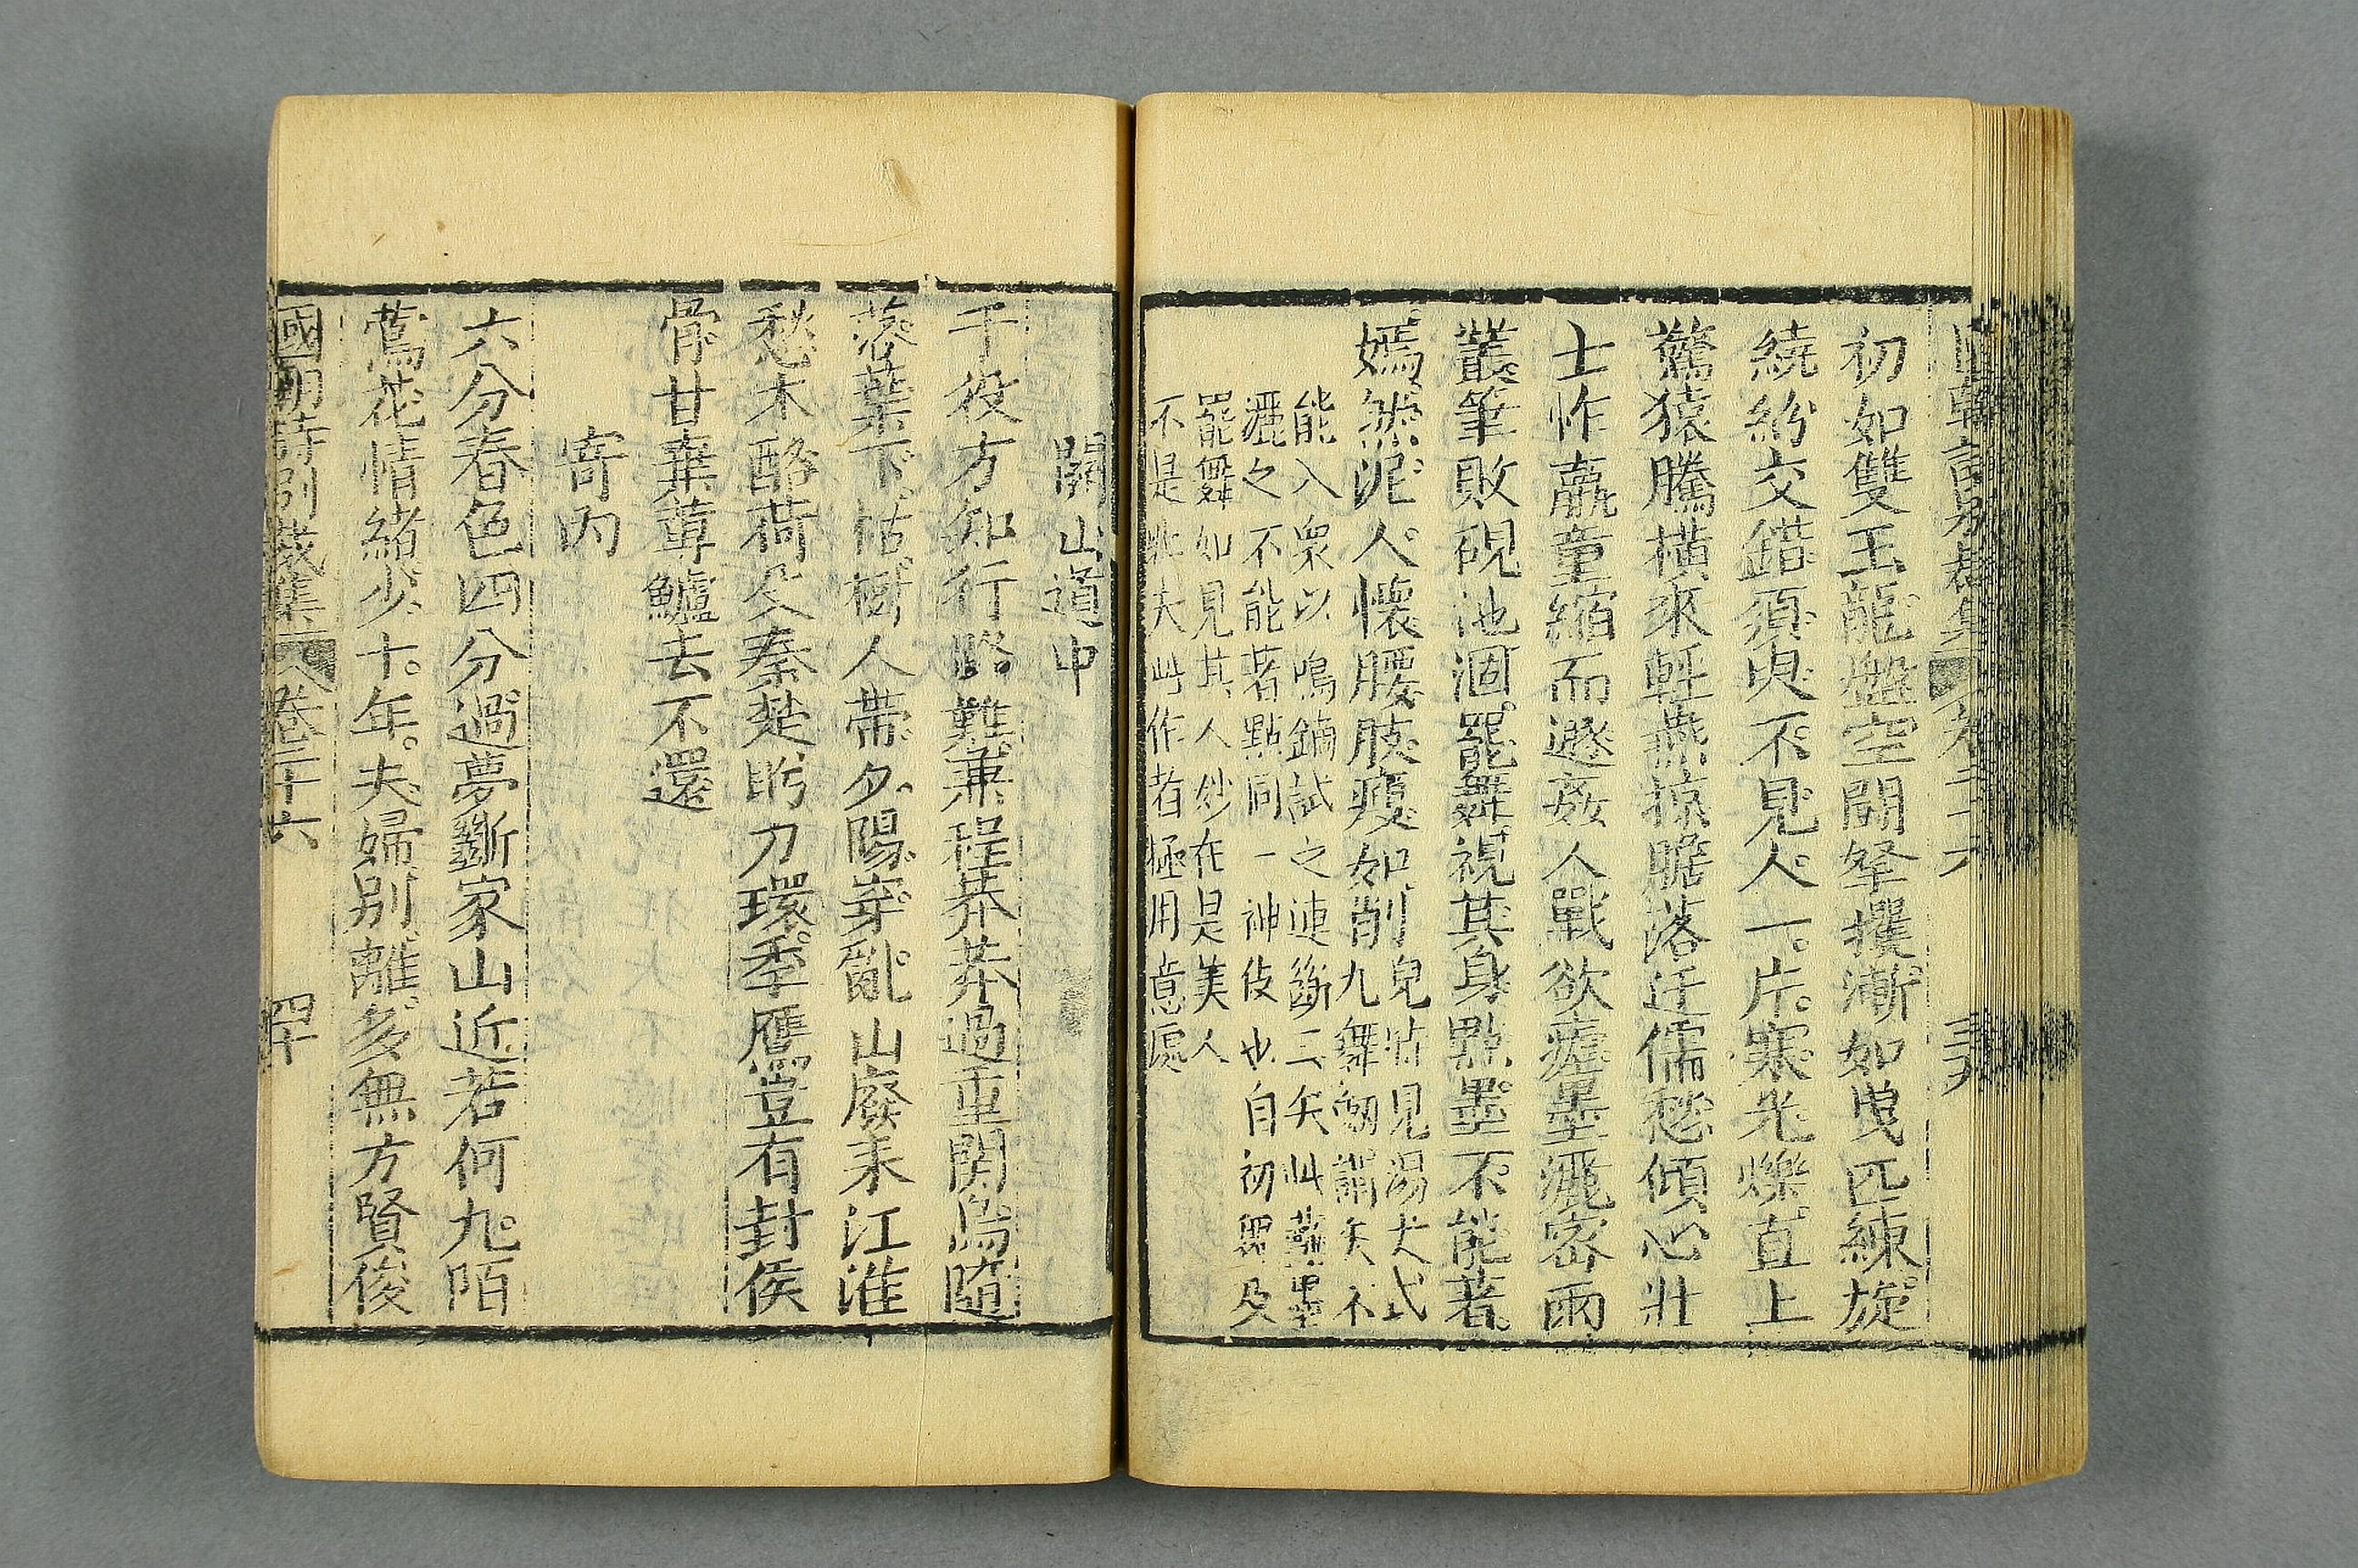 初如雙玉龍盤空鬬拏攫漸如曳匹練旋
繞紛交錯須臾不見人一片寒光爍直上
驚猿騰橫來輕燕掠膽落迂儒愁傾心壯
士怍羸童縮而遯姦人戰欲瘧墨灑密雨
叢筆敗硯池涸罷舞視其身點墨不能著
嫣然泥人懷腰肢瘦如削
兒
九舞
能入衆以鳴鏑試之連斷二矢此
灑之不能著點同一神伎也自初舞及
罷舞如見其人妙在是美人
不是武夫此作者極用意處
關山道中
千役方知行路難兼程莽莽過重關鳥隨
落葉下枯樹人帶夕陽穿亂山廢耒江淮
愁木酪荷戈秦楚盼刀環季鷹豈有封侯
骨甘棄蓴鱸去不還
寄内
六分春色四分過夢斷家山近若何九陌
鶯花情緒少十年夫婦别離多無方賢俊
國朝詩别裁集 卷二十六 四十